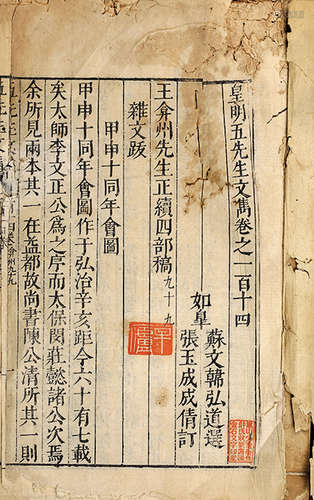 皇明五先生文雋卷之一百十四
如皐
蘇文韓弘道選
張玉成成倩訂
王弇州先生正續四部稿九十九
雜文跋
甲申十同年會圖
甲申十同年會圖作于弘治辛亥距今六十有七載
矣太師李文正公爲之序而太保閔莊懿諸公次焉
余所見兩本其一在盖都故尚書陳公清所其一則